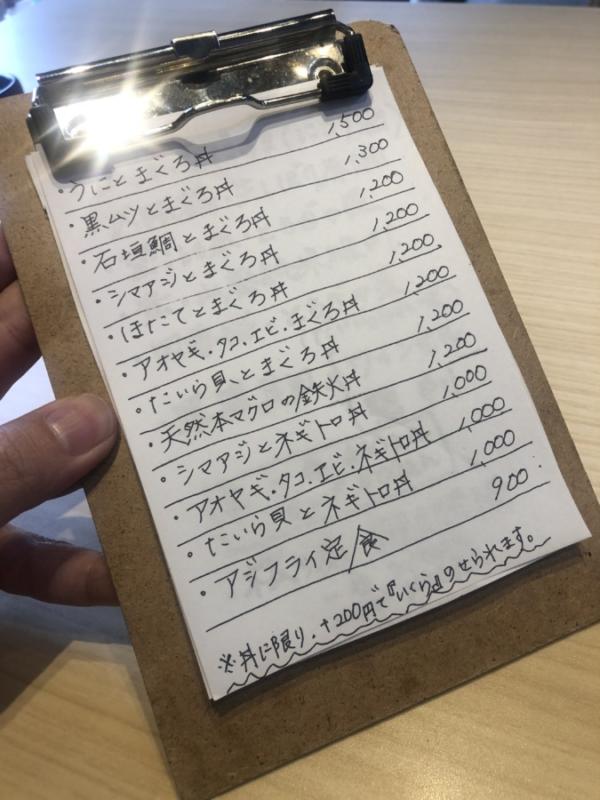 ・うにとまぐろ丼 1,500
・黒ムツとまぐろ丼 1,300
・石垣鯛とまぐろ丼 1,200
・シマアジとまぐろ丼 1,200
・ほたてとまぐろ丼 1,200
・アオヤギ・タコ・エビ・まぐろ丼 1,200
・たいら貝とまぐろ丼 1,200
・天然本マグロの鉄火丼 1,200
・シマアジとネギトロ丼 1,000
・アオヤギ・タコ・エビ・ネギトロ丼 1,000
・たいら貝とネギトロ丼 1,000
・アジフライ定食 900
※丼に限り、+200円で『いくら』のせられます。